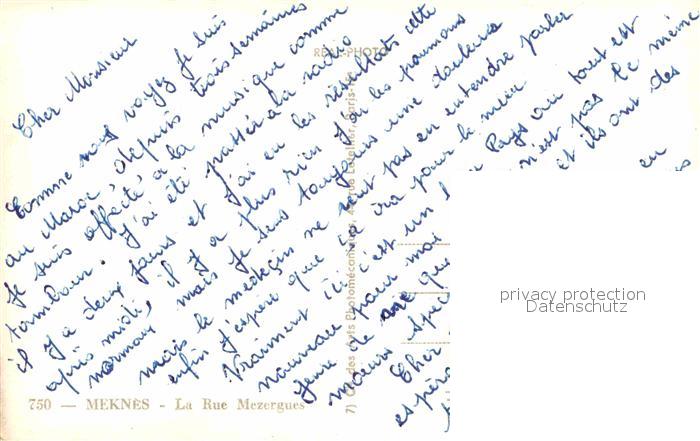 Cher Monsieur
Comme vous voyez je suis
au Maroc depuis trois semaines
Je suis affecté à la musique comme
tambour. J'ai été passer à la radio
il y a deux jours et j'ai eu les résultats cette
après midi, il y a plus rien j'ai les poumons
normaux mais je sens toujours une douleur
mais le médecin ne veut pas en entendre parler
enfin j'espère que ce ira pour le mieux
Vraiment ici c'est un Pays ou tout est
nouveau pour moi n'est pas le même
genre de que et ils ont des
moeurs spéc
Cher en
espère
REAL-PHOTO
7) Cie des Arts Photomécaniques, Rue Paris
750 — MEKNÈS - La Rue Mezergues
privacy protection
Datenschutz